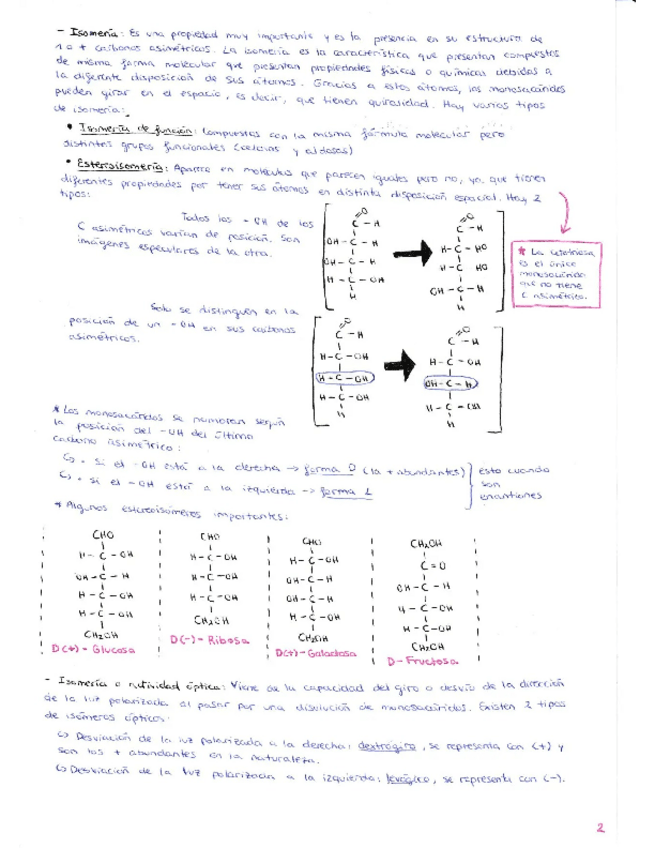 - Isomería: Es una propiedad muy importante y es la presencia en su estructura de
1 o + carbonos asimétricos. La isomería es la característica que presentan compuestos
de misma forma molecular que presentan propiedades físicas o químicas debidas a
la diferente disposición de sus átomos. Gracias a estos átomos, los monosacáridos
pueden girar en el espacio, es decir, que tienen quiralidad. Hay varios tipos
de isomería:
• Isomería de función: Compuestos con la misma fórmula molecular pero
distintos grupos funcionales (cetosas y aldosas)
• Estereoisomería: Aparece en moléculas que parecen iguales pero no, ya que tienen
diferentes propiedades por tener sus átomos en distinta disposición espacial. Hay 2
tipos:
Todos los -OH de los
C asimétricos varían de posición. Son
imágenes especulares de la otra.
O
C - H
OH - C - H
OH - C - H
H - C - OH
H
O
C - H
H - C - HO
H - C HO
OH - C - H
H
* La cetotriosa
es el único
monosacárido
que no tiene
C asimétrico.
Solo se distinguen en la
posición de un -OH en sus carbonos
asimétricos.
O
C - H
H - C - OH
H - C - OH
H - C - OH
H
O
C - H
H - C - OH
OH - C - H
H - C - OH
H
* Los monosacáridos se nombran según
la posición del -OH del último
carbono asimétrico:
• Si el -OH está a la derecha → forma D (la + abundantes)
• Si el -OH está a la izquierda → forma L
esto cuando
son
* Algunos estereoisómeros importantes:
CHO
H - C - OH
OH - C - H
H - C - OH
H - C - OH
CH2OH
D(+) - Glucosa
CHO
H - C - OH
H - C - OH
H - C - OH
CH2OH
D(-) - Ribosa
CHO
H - C - OH
OH - C - H
OH - C - H
H - C - OH
CH2OH
D(+) - Galactosa
CH2OH
C = O
OH - C - H
H - C - OH
H - C - OH
CH2OH
D - Fructosa
- Isomería o actividad óptica: Viene de la capacidad del giro o desvío de la dirección
de la luz polarizada al pasar por una disolución de monosacáridos. Existen 2 tipos
de isómeros ópticos:
Desviación de la luz polarizada a la derecha: dextrógiro, se representa con (+) y
son los + abundantes en la naturaleza.
Desviación de la luz polarizada a la izquierda: levógiro, se representa con (-).
2